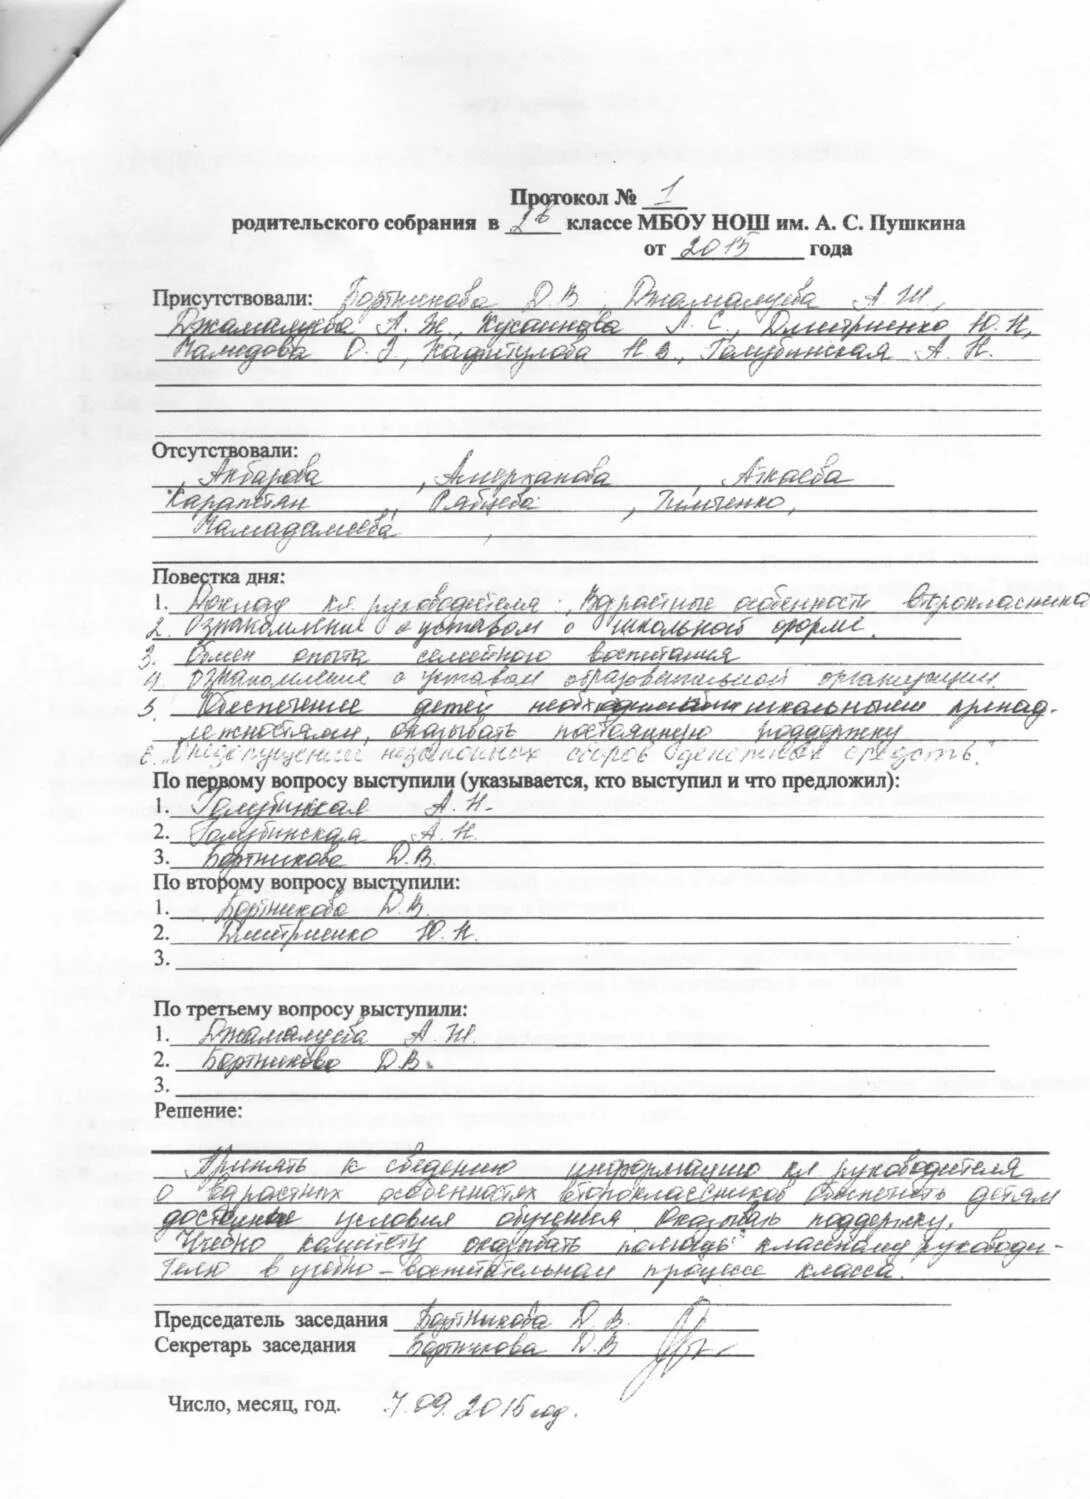 Протокол № 1
родительского собрания в 2б классе МБОУ НОШ им. А. С. Пушкина
от 2015 года
Присутствовали: Бортникова Д.В., Джамалуева А.Ж.,
А.Ж., Л.С., Дмитриенко Ю.Н.,
О.Э., Н.В., Голубинская А.Н.
Отсутствовали:
, Акбарова , Амерханова , Аткаева
Карапетян , Рябцева , ,
,
Повестка дня:
1. Доклад кл. руководителя: „Вздрастные особенности
2. Ознакомление с уставом о школьной форме.
3. Обмен опыта семейного воспитания
4. Ознакомление с уставом образовательной организации.
5. Обеспечение детей школьными принад-
лежностями, оказывать постоянную поддержку
6. „О недопущении незаконных сборов денежных средств."
По первому вопросу выступили (указывается, кто выступил и что предложил):
1. Голубинская А.Н.
2. Голубинская А.Н.
3. Бортникова Д.В.
По второму вопросу выступили:
1. Бортникова Д.В.
2. Дмитриенко Ю.Н.
3.
По третьему вопросу выступили:
1. Джамалуева А.Ж.
2. Бортникова Д.В.
3.
Решение:
Принять к сведению информацию кл. руководителя
о особенностях второклассников. Обеспечить детям
условия обучения. Оказывать поддержку.
комитету оказывать помощь классному руководи-
телю в учебно-воспитательном процессе класса.
Председатель заседания Бортникова Д.В.
Секретарь заседания Бортникова Д.В
Число, месяц, год. 7.09.2015 год.